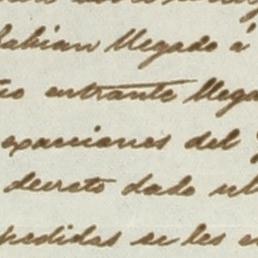 habian llegado á
entrante llega
exacciones del
decreto dado
pedidas se les